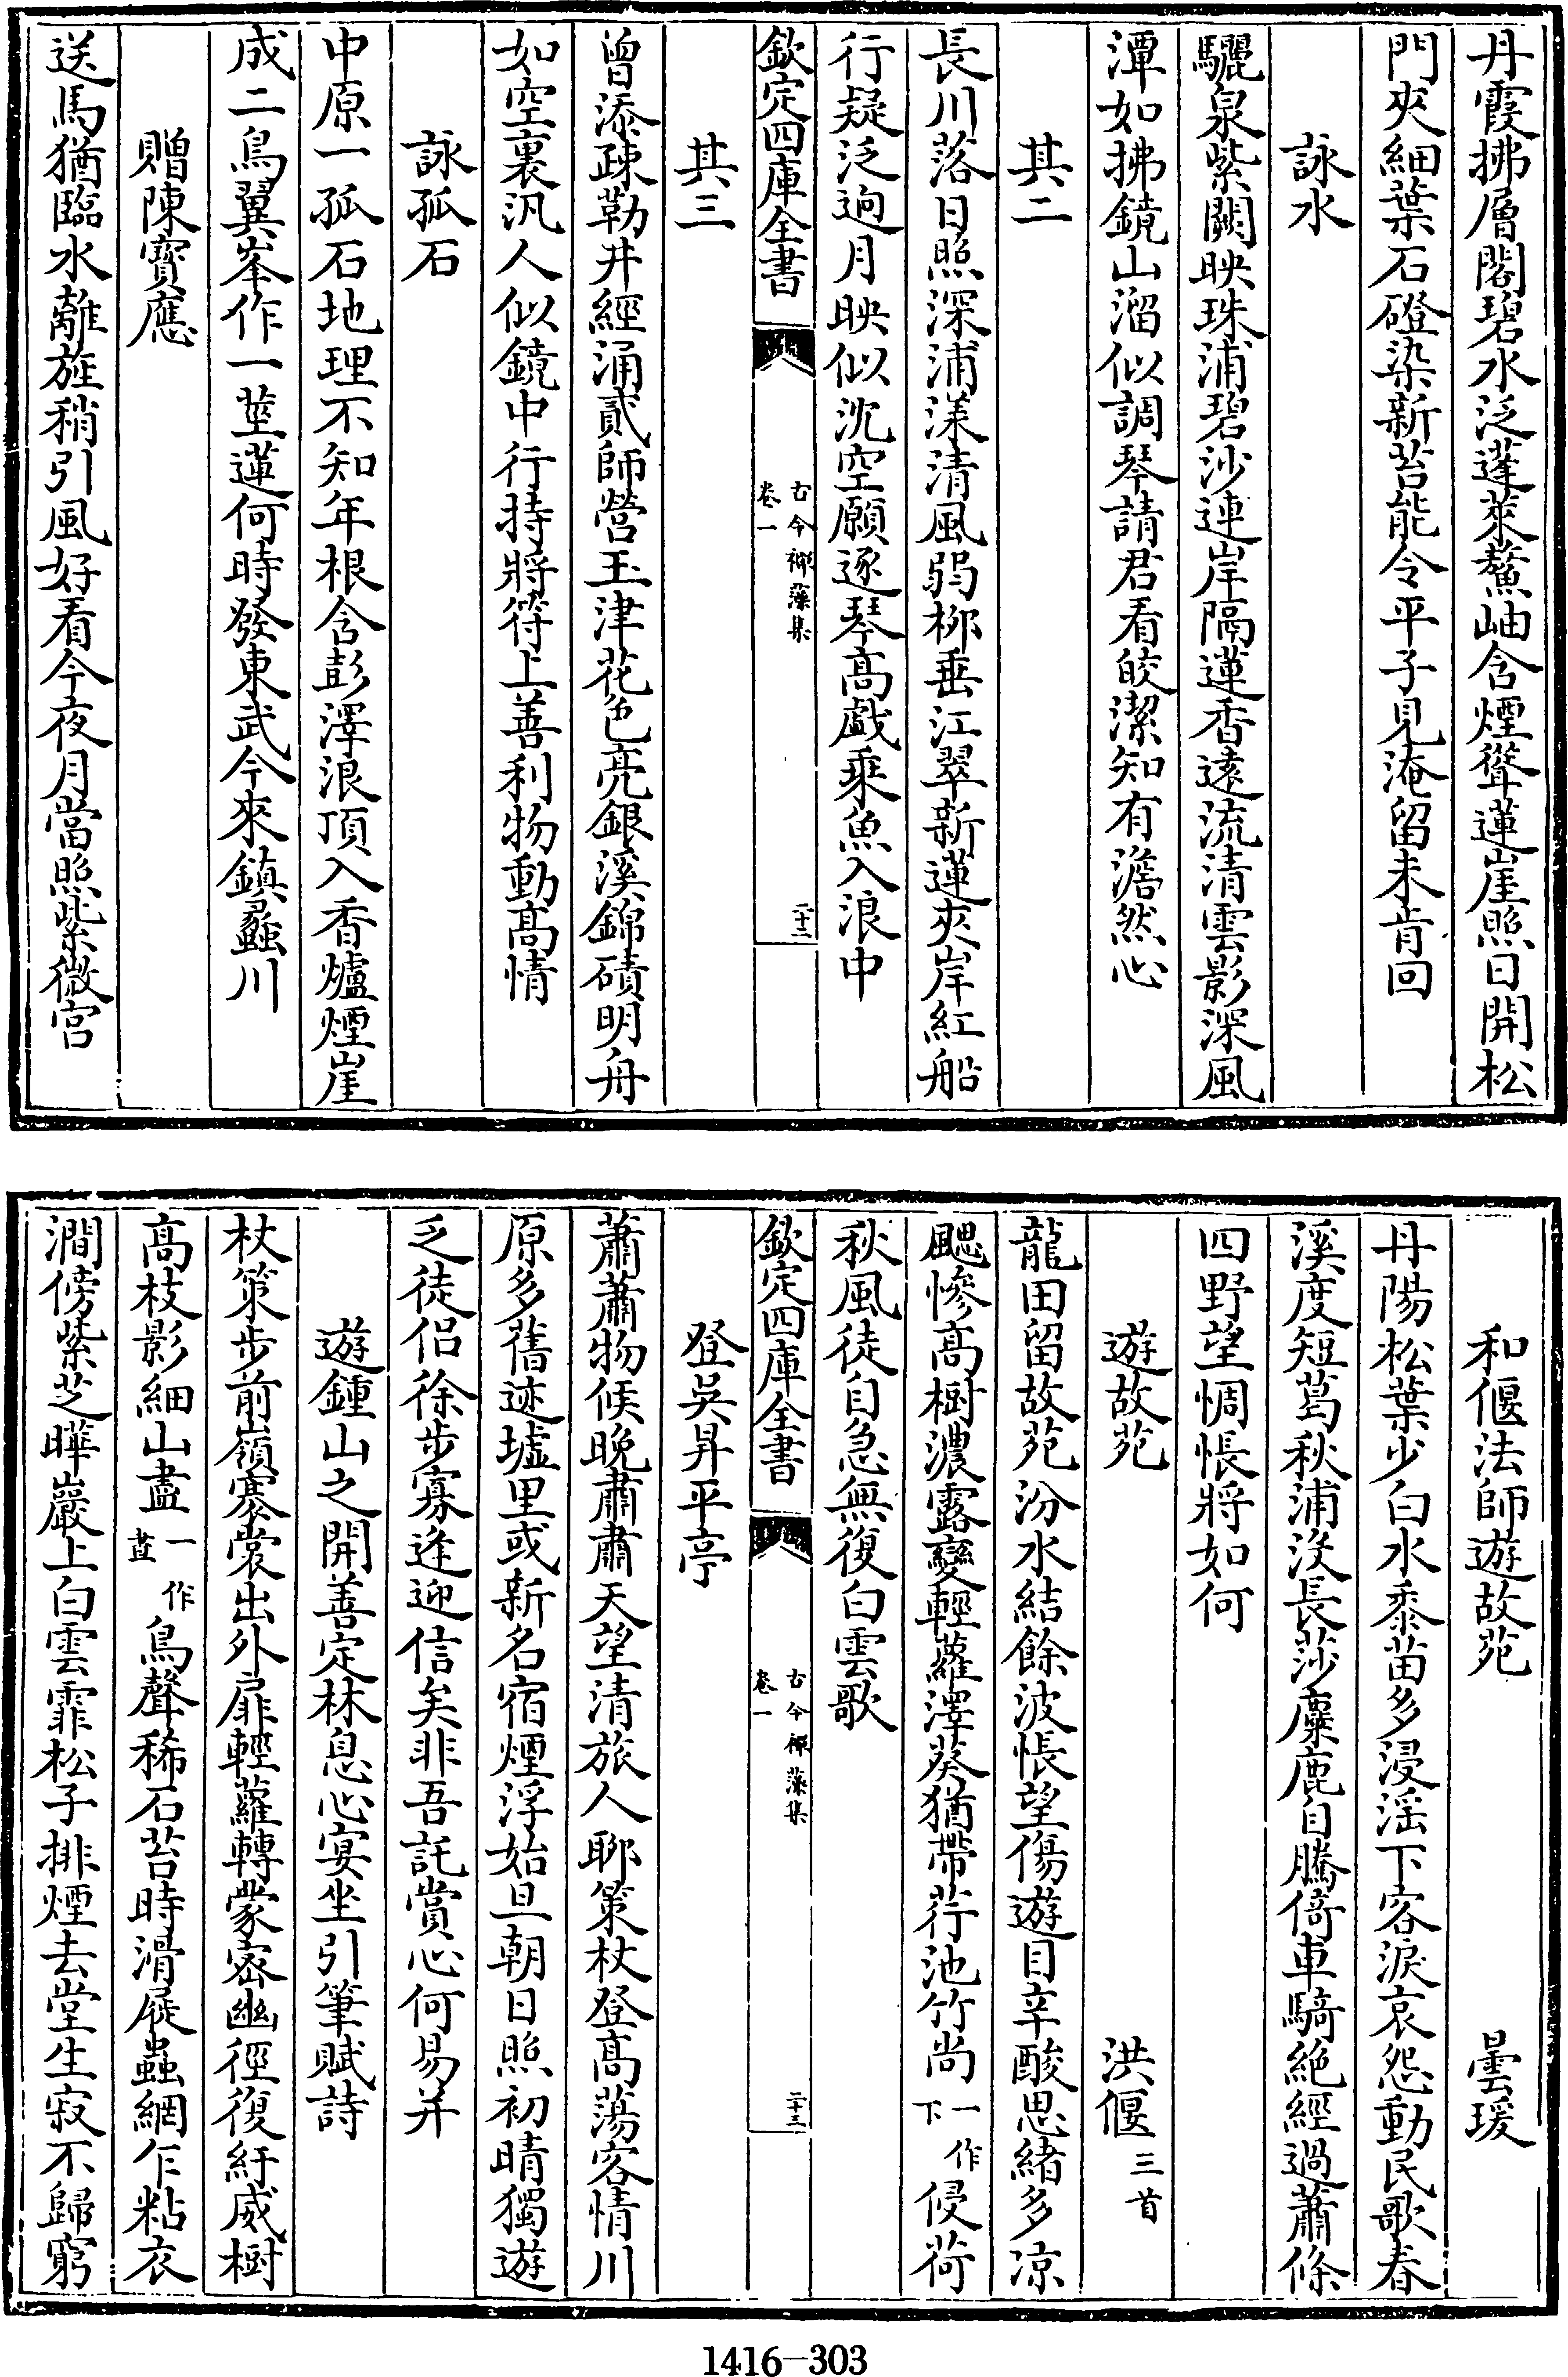 丹霞拂層閣碧水泛蓬萊鰲岫含煙聳蓮崖照日開松
門夾細葉石磴染新苔能令平子見淹留未肯回
詠水
驪泉紫闕映珠浦碧沙連岸隔蓮香遠流清雲影深風
潭如拂鏡山溜似調琴請君看皎潔知有澹然心
其二
長川落日照深浦漾清風弱柳垂江翠新蓮夾岸紅船
行疑泛迥月映似沈空願逐琴高戲乘魚入浪中
欽定四庫全書
古今禪藻集
卷一
二十二
其三
曾添疎勒井經涌貳師營玉津花色亮銀溪錦磧明舟
如空裏汎人似鏡中行持將符上善利物動高情
詠孤石
中原一孤石地理不知年根含彭澤浪頂入香爐煙崖
成二鳥翼峯作一莖蓮何時發東武今來鎮蠡川
贈陳寳應
送馬猶臨水離旌稍引風好看今夜月當照紫微宫
和偃法師遊故苑 曇瑗
丹陽松葉少白水黍苗多浸淫下客淚哀怨動民歌春
溪度短葛秋浦沒長莎麋鹿自騰倚車騎絶經過蕭條
四野望惆悵將如何
遊故苑 洪偃三首
龍田留故苑汾水結餘波悵望傷遊目辛酸思緒多凉
颸慘高樹濃露變輕蘿澤葵猶帶荇池竹尚一作下侵荷
秋風徒自急無復白雲歌
欽定四庫全書
古今禪藻集
卷一
二十三
登吳昇平亭
蕭蕭物候晚肅肅天望清旅人聊策杖登高蕩客情川
原多舊迹墟里或新名宿煙浮始旦朝日照初晴獨遊
乏徒侣徐步寡逢迎信矣非吾託賞心何易并
遊鍾山之開善定林息心宴坐引筆賦詩
杖策步前嶺褰裳出外扉輕蘿轉蒙密幽徑復紆威樹
高枝影細山盡一作晝鳥聲稀石苔時滑屐蟲網乍粘衣
澗傍紫芝曄巖上白雲霏松子排煙去堂生寂不歸窮
1416-303